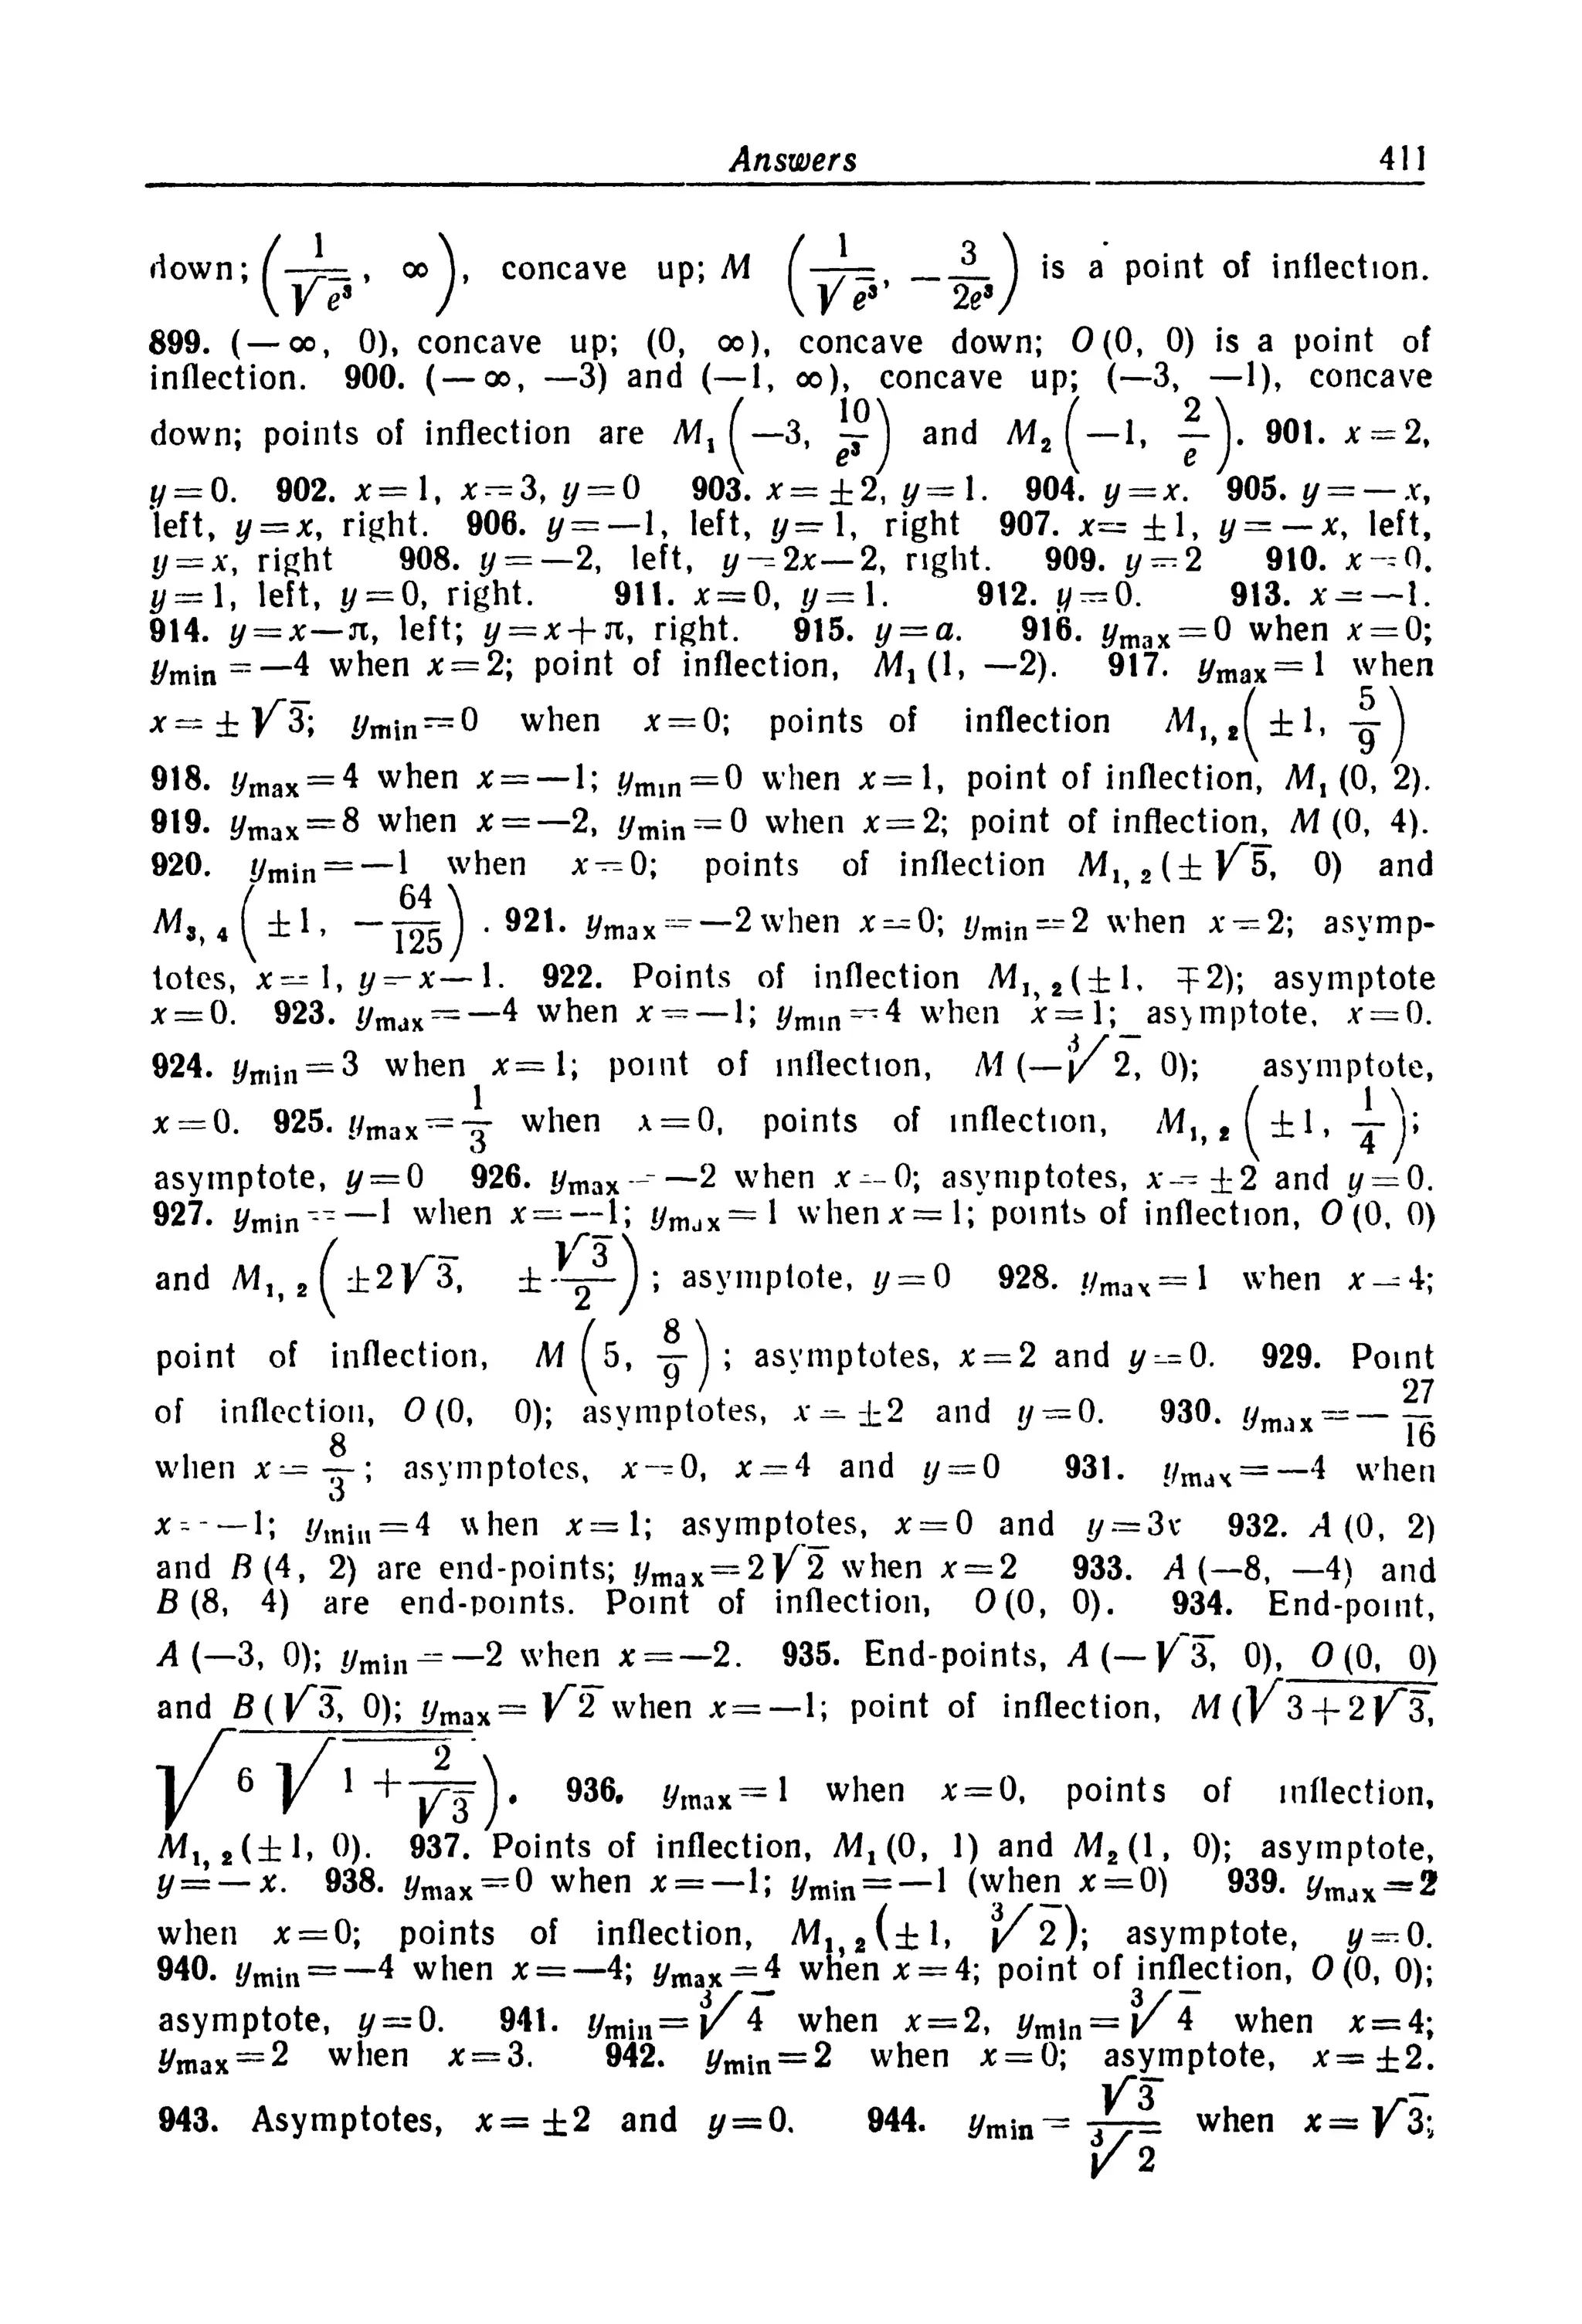 Answers 411
down; (1/√e³, ∞), concave up; M (1/√e³, —3/2e³) is a point of inflection.
899. (—∞, 0), concave up; (0, ∞), concave down; O (0, 0) is a point of
inflection. 900. (—∞, —3) and (—1, ∞), concave up; (—3, —1), concave
down; points of inflection are M₁ (—3, 10/e³) and M₂ (—1, 2/e). 901. x=2,
y=0. 902. x=1, x=3, y=0 903. x=±2, y=1. 904. y=x. 905. y=—x,
left, y=x, right. 906. y=—1, left, y=1, right 907. x=±1, y=—x, left,
y=x, right 908. y=—2, left, y=2x—2, right. 909. y=2 910. x=0.
y=1, left, y=0, right. 911. x=0, y=1. 912. y=0. 913. x=—1.
914. y=x—π, left; y=x+π, right. 915. y=a. 916. y_max=0 when x=0;
y_min=—4 when x=2; point of inflection, M₁ (1, —2). 917. y_max=1 when
x=±√3; y_min=0 when x=0; points of inflection M₁,₂ (±1, 5/9)
918. y_max=4 when x=—1; y_min=0 when x=1, point of inflection, M₁ (0, 2).
919. y_max=8 when x=—2, y_min=0 when x=2; point of inflection, M (0, 4).
920. y_min=—1 when x=0; points of inflection M₁,₂ (±√5, 0) and
M₃,₄ (±1, —64/125). 921. y_max=—2 when x=0; y_min=2 when x=2; asymp-
totes, x=1, y=x—1. 922. Points of inflection M₁,₂ (±1, ∓2); asymptote
x=0. 923. y_max=—4 when x=—1; y_min=4 when x=1; asymptote, x=0.
924. y_min=3 when x=1; point of inflection, M (—∛2, 0); asymptote,
x=0. 925. y_max=1/3 when x=0, points of inflection, M₁,₂ (±1, 1/4);
asymptote, y=0 926. y_max=—2 when x=0; asymptotes, x=±2 and y=0.
927. y_min=—1 when x=—1; y_max=1 when x=1; points of inflection, O (0, 0)
and M₁,₂ (±2√3, ±√3/2); asymptote, y=0 928. y_max=1 when x=4;
point of inflection, M (5, 8/9); asymptotes, x=2 and y=0. 929. Point
of inflection, O (0, 0); asymptotes, x=±2 and y=0. 930. y_max=—27/16
when x=8/3; asymptotes, x=0, x=4 and y=0 931. y_max=—4 when
x=—1; y_min=4 when x=1; asymptotes, x=0 and y=3x 932. A (0, 2)
and B (4, 2) are end-points; y_max=2√2 when x=2 933. A (—8, —4) and
B (8, 4) are end-points. Point of inflection, O (0, 0). 934. End-point,
A (—3, 0); y_min=—2 when x=—2. 935. End-points, A (—√3, 0), O (0, 0)
and B (√3, 0); y_max=√2 when x=—1; point of inflection, M (√(3+2√3),
√(6√(1+2/√3))). 936. y_max=1 when x=0, points of inflection,
M₁,₂ (±1, 0). 937. Points of inflection, M₁ (0, 1) and M₂ (1, 0); asymptote,
y=—x. 938. y_max=0 when x=—1; y_min=—1 (when x=0) 939. y_max=2
when x=0; points of inflection, M₁,₂ (±1, ∛2); asymptote, y=0.
940. y_min=—4 when x=—4; y_max=4 when x=4; point of inflection, O (0, 0);
asymptote, y=0. 941. y_min=∛4 when x=2, y_min=∛4 when x=4;
y_max=2 when x=3. 942. y_min=2 when x=0; asymptote, x=±2.
943. Asymptotes, x=±2 and y=0. 944. y_min=√3/∛2 when x=√3;